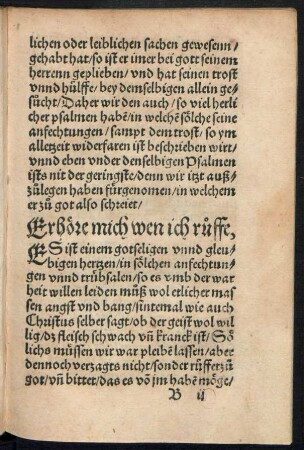 lichen oder leiblichen sachen gewesenn/
gehabt hat/so ist er imer bei gott seinem
herrenn geplieben/vnd hat seinen trost
vnnd hülffe/bey demselbigen allein ge-
sücht/Daher wir den auch/so viel herli
cher psalmen habē/in welchē sölche seine
anfechtungen/sampt dem trost/so ym
alletzeit widerfaren ist beschrieben wirt/
vnnd eben vnder denselbigen Psalmen
ists nit der geringste/denn wir itzt auß-
zülegen haben fürgenomen/in welchem
er zü got also schreiet/
Erhöre mich wen ich rüffe,
ES ist einem gotseligen vnnd gleu-
bigen hertzen/in sölchen anfechtun-
gen vnnd trübsalen/so es vmb der war
heit willen leiden müß wol etlicher mas
sen angst vnd bang/sintemal wie auch
Christus selber sagt/ob der geist wol wil
lig/dz fleisch schwach vn̄ kranck ist/Sö
lichs müssen wir war pleibē lassen/aber
dennoch verzagts nicht/sonder rüfft er zü
got/vn̄ bittet/das es vō jm habē möge/
B ij